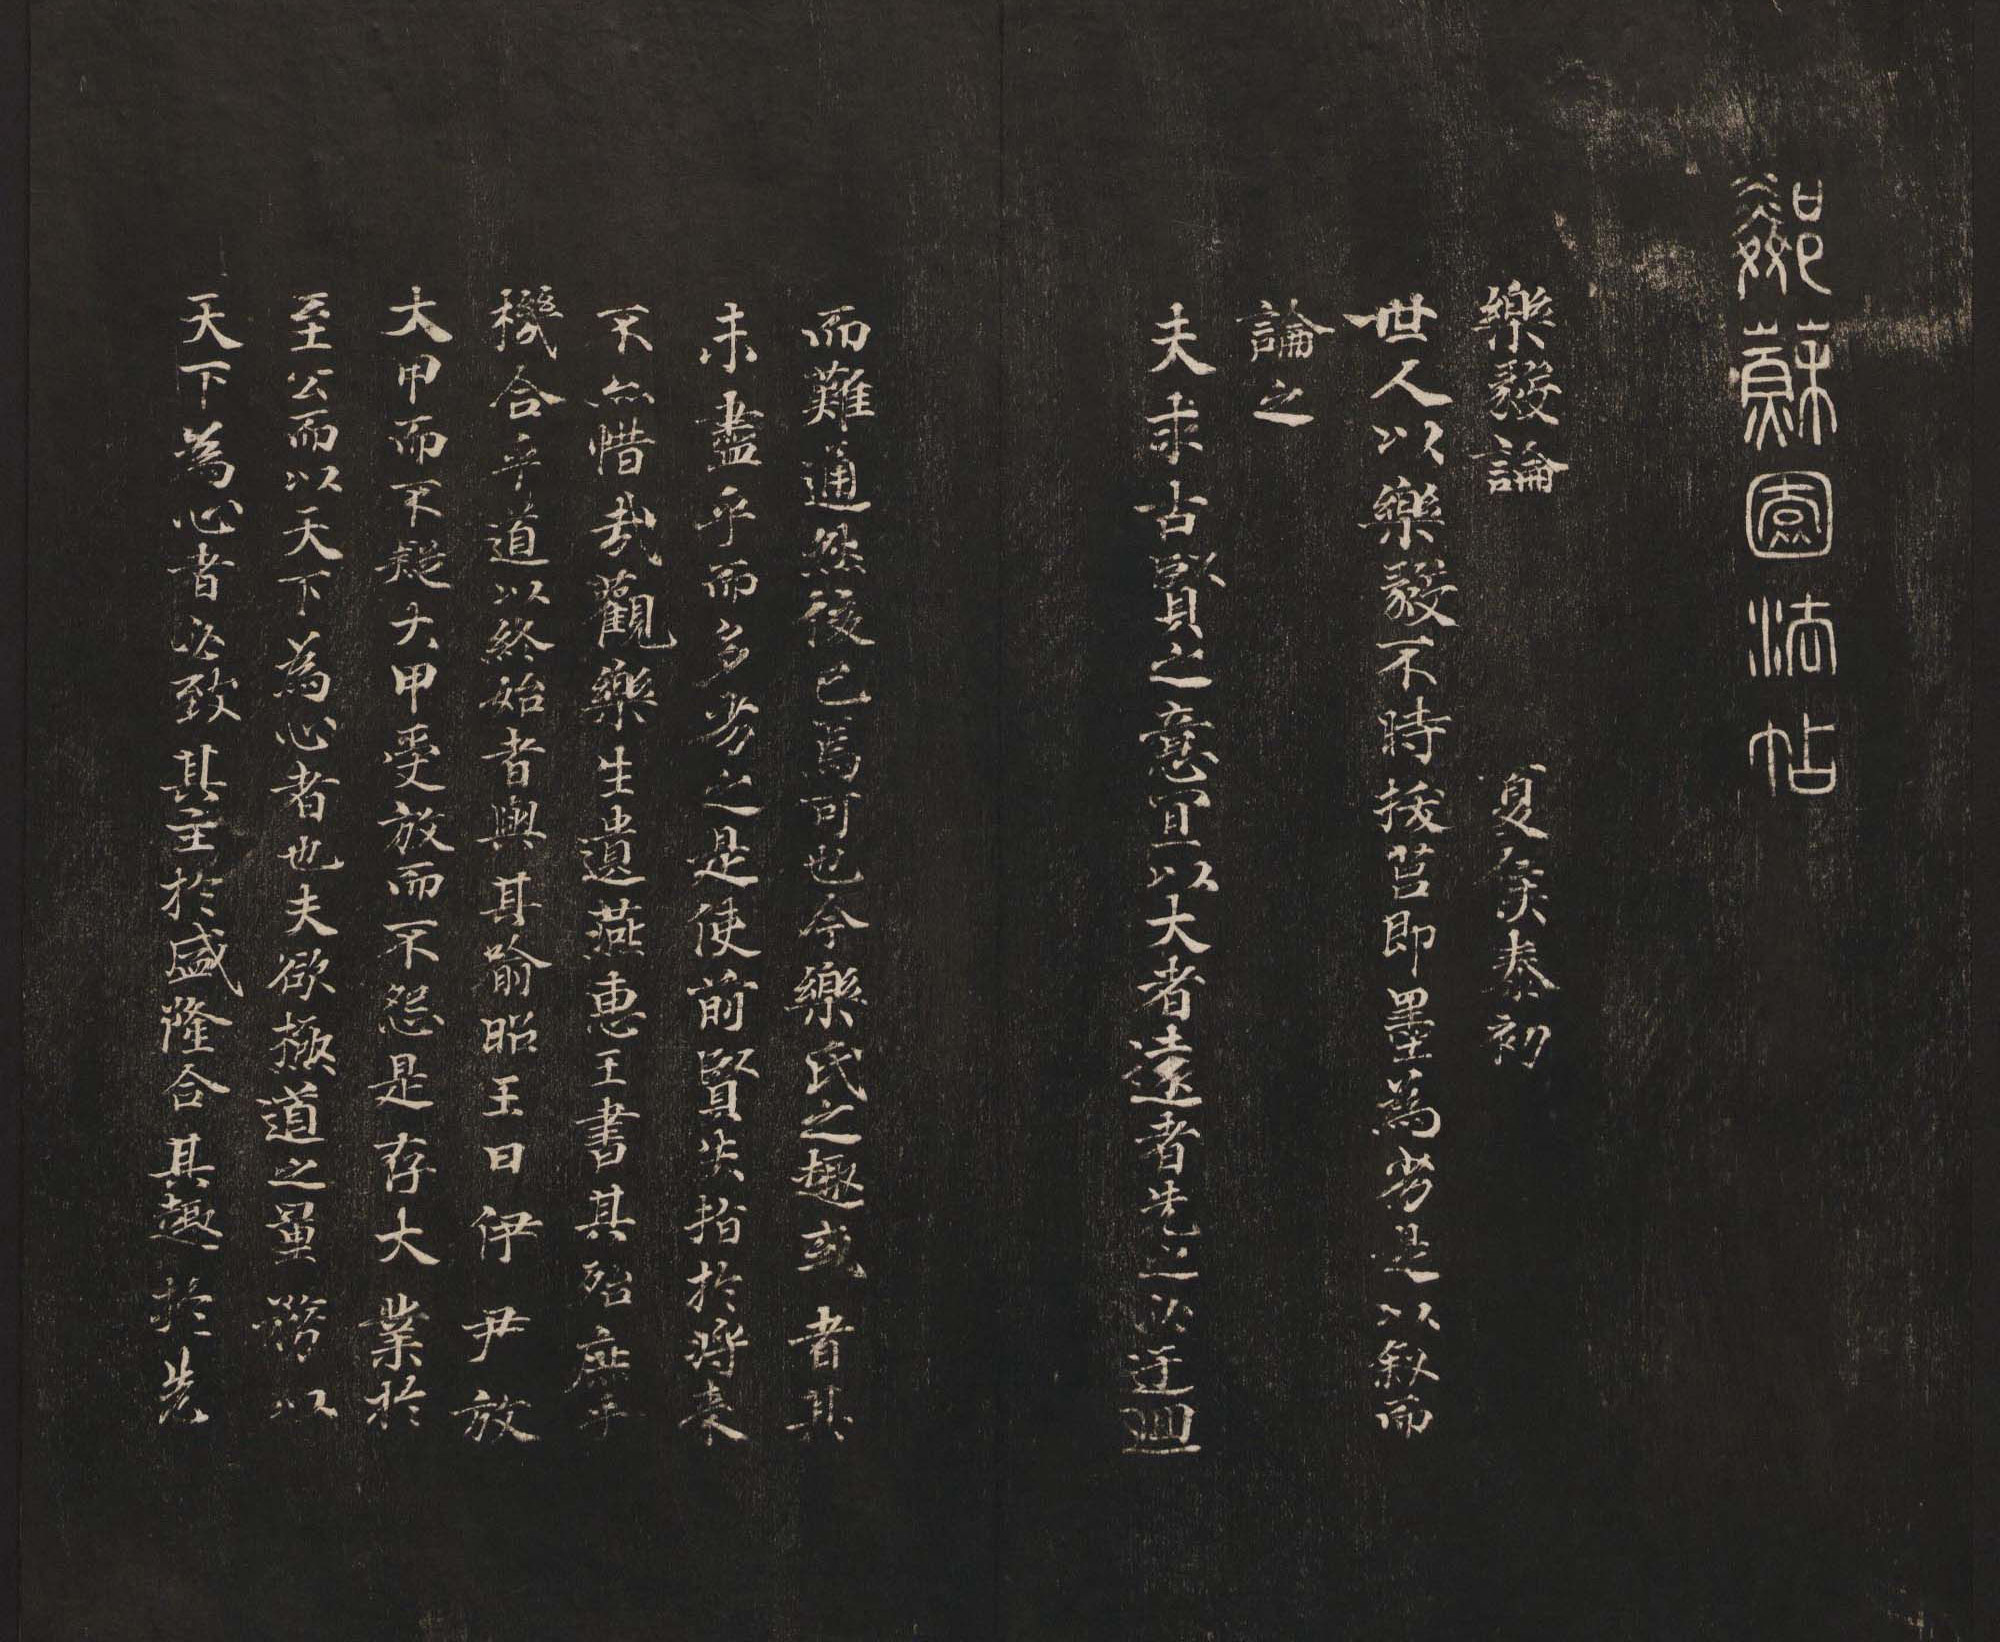 鄰蘇園法帖
樂毅論 夏侯泰初
世人以樂毅不時拔莒即墨為劣是以叙而
論之
夫求古賢之意宜以大者遠者先之必迂迴
而難通然後已焉可也今樂氏之趣或者其
未盡乎而多劣之是使前賢失指於將來
不亦惜哉觀樂生遺燕惠王書其殆庶乎
機合乎道以終始者與其喻昭王曰伊尹放
大甲而不疑大甲受放而不怨是存大業於
至公而以天下為心者也夫欲極道之量務以
天下為心者必致其主於盛隆合其趣於先